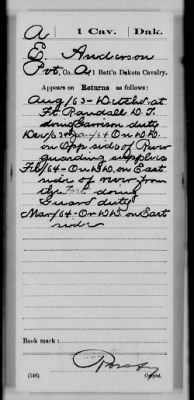 A 1 Cav. Dak.
E. Anderson
Pvt, Co. A, 1 Batt'n Dakota Cavalry.
Appears on Returns as follows:
Aug/63 - Detchd. at
Ft. Randall D. T.
doing Garrison duty
Dec/63 & Jan/64 - On D.D.
on opp side of River
guarding supplies
Feb/64 - On D.D. on East
side of river from
the Fort doing
Guard duty
Mar/64 - On D.D. on East
side
Book mark:
(546) Copyist.